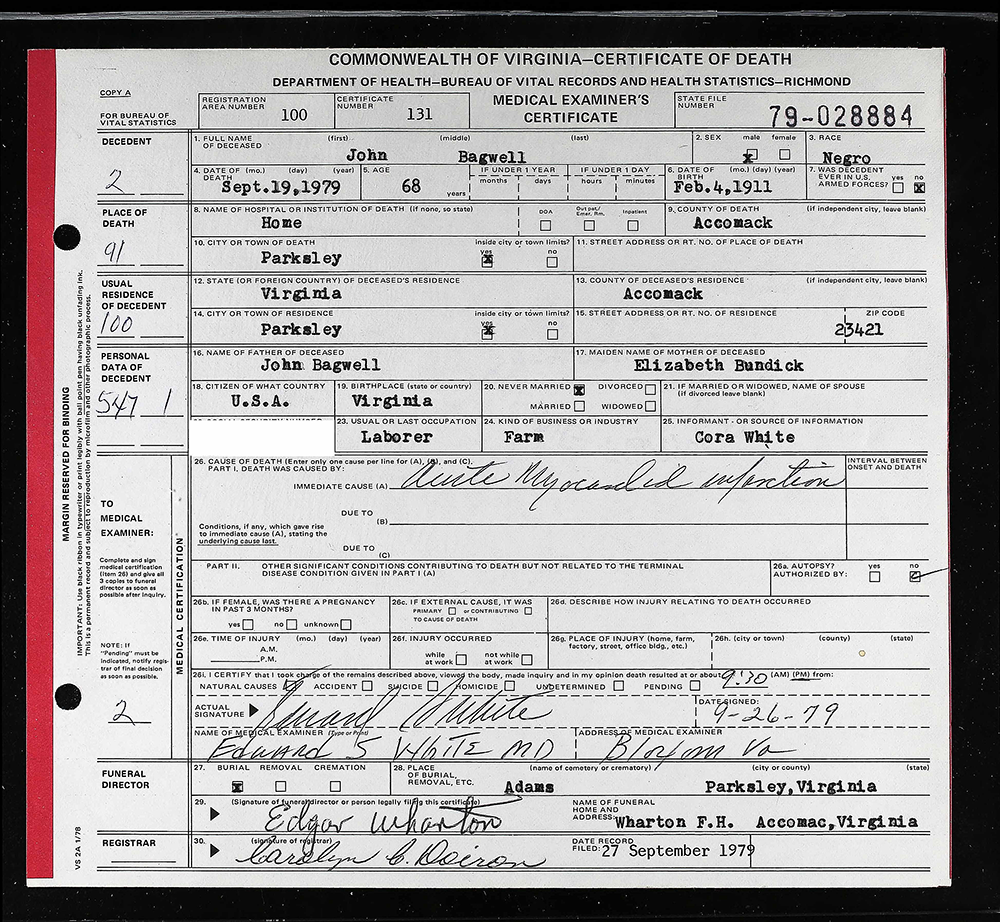 COMMONWEALTH OF VIRGINIA—CERTIFICATE OF DEATH
DEPARTMENT OF HEALTH—BUREAU OF VITAL RECORDS AND HEALTH STATISTICS—RICHMOND
COPY A
FOR BUREAU OF VITAL STATISTICS
REGISTRATION AREA NUMBER 100
CERTIFICATE NUMBER 131
MEDICAL EXAMINER'S CERTIFICATE
STATE FILE NUMBER 79-028884
DECEDENT
2
1. FULL NAME OF DECEASED (first) (middle) (last)
John Bagwell
2. SEX male female
x
3. RACE
Negro
4. DATE OF DEATH (mo.) (day) (year)
Sept.19,1979
5. AGE
68 years
IF UNDER 1 YEAR months days
IF UNDER 1 DAY hours minutes
6. DATE OF BIRTH (mo.) (day) (year)
Feb.4,1911
7. WAS DECEDENT EVER IN U.S. ARMED FORCES? yes no
x
PLACE OF DEATH
91
8. NAME OF HOSPITAL OR INSTITUTION OF DEATH (if none, so state)
Home
DOA Out pat/ Emer. Rm. Inpatient
9. COUNTY OF DEATH (if independent city, leave blank)
Accomack
10. CITY OR TOWN OF DEATH inside city or town limits? yes no
Parksley x
11. STREET ADDRESS OR RT. NO. OF PLACE OF DEATH
USUAL RESIDENCE OF DECEDENT
100
12. STATE (OR FOREIGN COUNTRY) OF DECEASED'S RESIDENCE
Virginia
13. COUNTY OF DECEASED'S RESIDENCE (if independent city, leave blank)
Accomack
14. CITY OR TOWN OF RESIDENCE inside city or town limits? yes no
Parksley x
15. STREET ADDRESS OR RT. NO. OF RESIDENCE ZIP CODE
23421
PERSONAL DATA OF DECEDENT
547 1
16. NAME OF FATHER OF DECEASED
John Bagwell
17. MAIDEN NAME OF MOTHER OF DECEASED
Elizabeth Bundick
18. CITIZEN OF WHAT COUNTRY
U.S.A.
19. BIRTHPLACE (state or country)
Virginia
20. NEVER MARRIED x DIVORCED
MARRIED WIDOWED
21. IF MARRIED OR WIDOWED, NAME OF SPOUSE (if divorced leave blank)
23. USUAL OR LAST OCCUPATION
Laborer
24. KIND OF BUSINESS OR INDUSTRY
Farm
25. INFORMANT - OR SOURCE OF INFORMATION
Cora White
MARGIN RESERVED FOR BINDING
IMPORTANT: Use black ribbon in typewriter or print legibly with ball point pen having black unfading ink.
This is a permanent record and subject to reproduction by microfilm and other photographic process.
TO MEDICAL EXAMINER:
Complete and sign medical certification (item 26) and give all 3 copies to funeral director as soon as possible after inquiry.
NOTE: If "Pending" must be indicated, notify registrar of final decision as soon as possible.
2
MEDICAL CERTIFICATION
26. CAUSE OF DEATH (Enter only one cause per line for (A), (B), and (C).
PART I. DEATH WAS CAUSED BY:
INTERVAL BETWEEN ONSET AND DEATH
IMMEDIATE CAUSE (A) Acute Myocardial infarction
DUE TO (B)
Conditions, if any, which gave rise to immediate cause (A), stating the underlying cause last.
DUE TO (C)
PART II. OTHER SIGNIFICANT CONDITIONS CONTRIBUTING TO DEATH BUT NOT RELATED TO THE TERMINAL DISEASE CONDITION GIVEN IN PART I (A)
26a. AUTOPSY? AUTHORIZED BY: yes no
26b. IF FEMALE, WAS THERE A PREGNANCY IN PAST 3 MONTHS?
yes no unknown
26c. IF EXTERNAL CAUSE, IT WAS
PRIMARY or CONTRIBUTING TO CAUSE OF DEATH
26d. DESCRIBE HOW INJURY RELATING TO DEATH OCCURRED
26e. TIME OF INJURY (mo.) (day) (year)
A.M.
P.M.
26f. INJURY OCCURRED
while at work not while at work
26g. PLACE OF INJURY (home, farm, factory, street, office bldg., etc.)
26h. (city or town) (county) (state)
26i. I CERTIFY that I took charge of the remains described above, viewed the body, made inquiry and in my opinion death resulted at or about 9:30 (AM) (PM) from:
NATURAL CAUSES ACCIDENT SUICIDE HOMICIDE UNDETERMINED PENDING
ACTUAL SIGNATURE Edward S White
DATE SIGNED:
9-26-79
NAME OF MEDICAL EXAMINER (Type or Print)
Edward S White MD
ADDRESS OF MEDICAL EXAMINER
Bloxom Va
FUNERAL DIRECTOR
27. BURIAL REMOVAL CREMATION
x
28. PLACE OF BURIAL, REMOVAL, ETC. (name of cemetery or crematory) (city or county) (state)
Adams Parksley,Virginia
29. (Signature of funeral director or person legally filing this certificate)
Edgar Wharton
NAME OF FUNERAL HOME AND ADDRESS: Wharton F.H. Accomac,Virginia
REGISTRAR
30. (signature of registrar)
Carolyn C. Doiron
DATE RECORD FILED: 27 September 1979
VS 2A 1/78